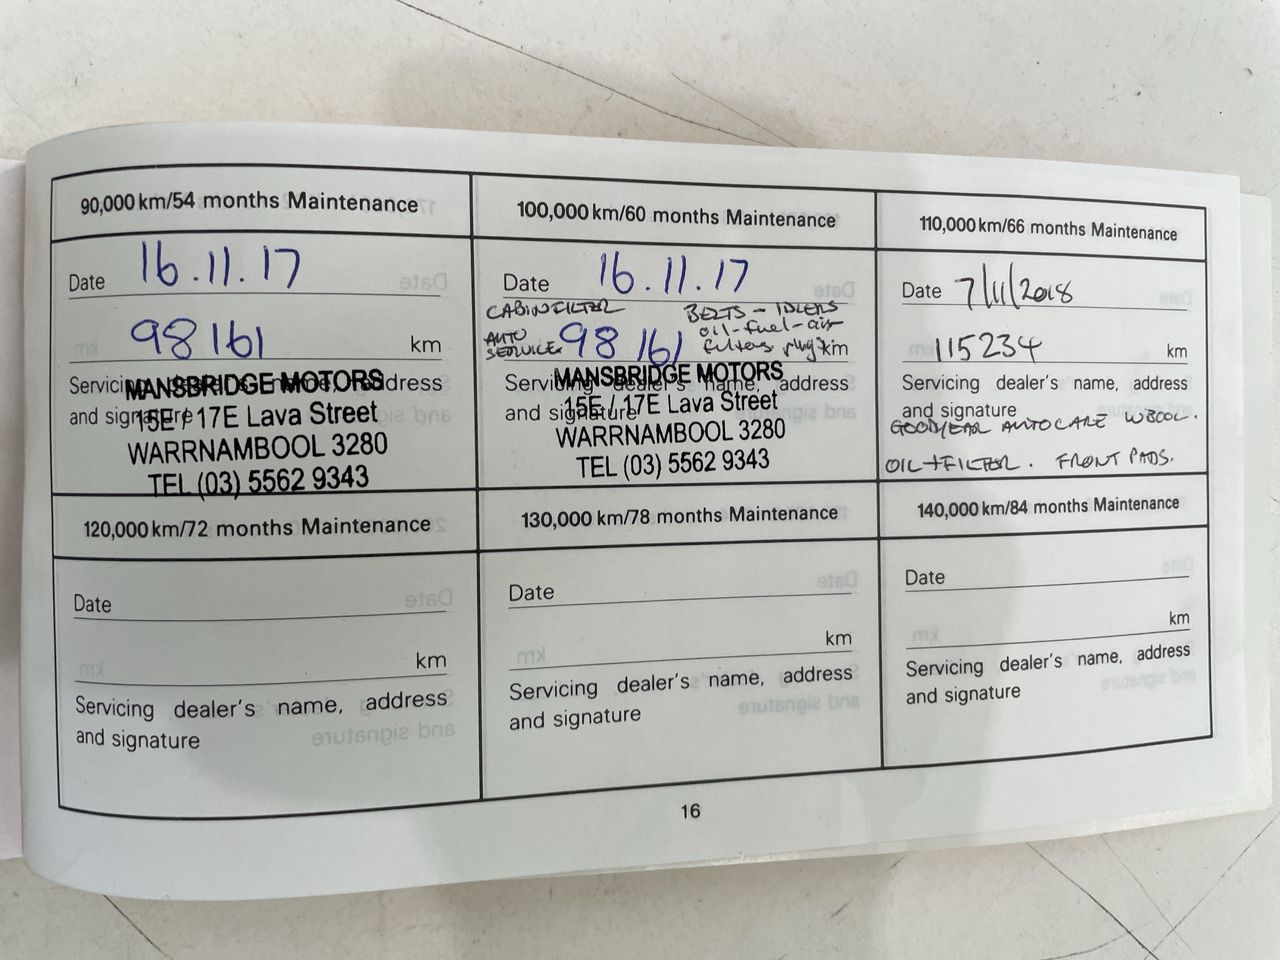 90,000 km/54 months Maintenance
Date 16.11.17
98161 km
Servicing dealer's name, address
and signature
MANSBRIDGE MOTORS
15E / 17E Lava Street
WARRNAMBOOL 3280
TEL (03) 5562 9343
100,000 km/60 months Maintenance
Date 16.11.17
CABIN FILTER
BELTS - IDLERS
AUTO
SERVICE
oil-fuel-air
filters
98161 km
Servicing dealer's name, address
and signature
MANSBRIDGE MOTORS
15E / 17E Lava Street
WARRNAMBOOL 3280
TEL (03) 5562 9343
110,000 km/66 months Maintenance
Date 7/11/2018
115234 km
Servicing dealer's name, address
and signature
GOODYEAR AUTOCARE W'BOOL.
OIL + FILTER. FRONT PADS.
120,000 km/72 months Maintenance
Date
km
Servicing dealer's name, address
and signature
130,000 km/78 months Maintenance
Date
km
Servicing dealer's name, address
and signature
140,000 km/84 months Maintenance
Date
km
Servicing dealer's name, address
and signature
16